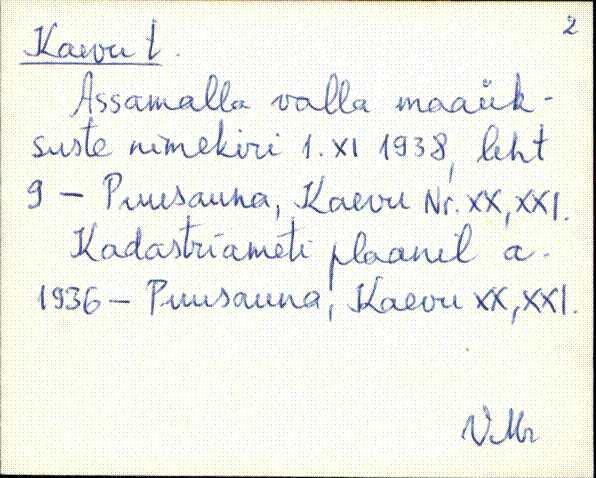 2
Kaevu t.
Assamalla valla maaük-
suste nimekiri 1. XI 1938, leht
9 – Puusauna, Kaevu Nr. XX, XXI.
Kadastriameti plaanil a.
1936 – Puusauna, Kaevu XX, XXI.
VMr